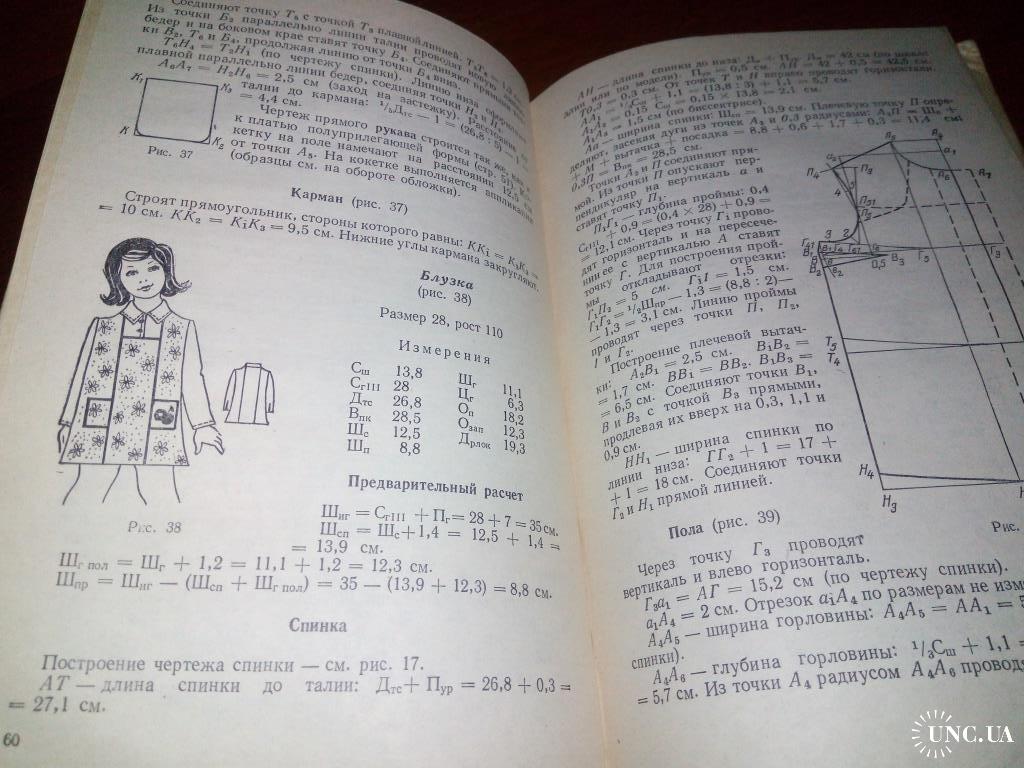 Соединяют точку Т₅ с точкой Т₃ плавной линией.
Из точки Б₃ параллельно линии талии проводят
бедер и на боковом крае ставят точку Б₄. Соединяют
ки В₂, Т₆ и Б₄, продолжая линию от точки Б₄ вниз.
Т₆Н₄ = Т₂Н₁ (по чертежу спинки). Линия низа
плавной параллельно линии бедер, соединяя точки Н₃ и Н₄
А₆А₇ = Н₂Н₆ = 2,5 см (заход на застежку). Расстояние
талии до кармана: ¹/₅Дтс — 1 = (26,8 : 5) — 1
= 4,4 см.
Чертеж прямого рукава строится так же, как
к платью полуприлегающей формы (стр. 51).
кетку на поле намечают на расстоянии 12,5 см
от точки А₅. На кокетке выполняется аппликация
(образцы см. на обороте обложки).
К₁
К₃
К
К₂
Рис. 37
Карман (рис. 37)
Строят прямоугольник, стороны которого равны: КК₁ = К₂К₃ =
= 10 см. КК₂ = К₁К₃ = 9,5 см. Нижние углы кармана закругляют.
Блузка
(рис. 38)
Размер 28, рост 110
Измерения
Сш 13,8
СгIII 28
Дтс 26,8
Впк 28,5
Шс 12,5
Шп 8,8
Шг 11,1
Цг 6,3
Оп 18,2
Озап 12,3
Дрлок 19,3
Рис. 38
Предварительный расчет
Шиг = СгIII + Пг = 28 + 7 = 35 см.
Шсп = Шс + 1,4 = 12,5 + 1,4 =
= 13,9 см.
Шг пол = Шг + 1,2 = 11,1 + 1,2 = 12,3 см.
Шпр = Шиг — (Шсп + Шг пол) = 35 — (13,9 + 12,3) = 8,8 см.
Спинка
Построение чертежа спинки — см. рис. 17.
АТ — длина спинки до талии: Дтс + Пур = 26,8 + 0,3 =
= 27,1 см.
60
АН — длина спинки до низа:
делию или по модели). Пур = 0,5 см. АН = 42 + 0,5 = 42,5 см.
ТТ₁ = 0,8 см. От точек Т и Н вправо проводят горизонтали.
АА₁ = ¹/₃Сш + 1,1 = (13,8 : 3) + 1,1 = 5,7 см.
А₁А₂ = 0,15 Сш = 0,15 × 13,8 = 2,1 см.
Аа = 1,5 см (по биссектрисе).
ширина спинки: Шсп = 13,9 см. Плечевую точку П опре-
деляют, засекая дуги из точек А₂ и 0,3 радиусами: А₂П = Шп +
+ М + вытачка + посадка = 8,8 + 0,6 + 1,7 + 0,3 = 11,4 см;
0,3П = Впк = 28,5 см.
Точки А₂ и П соединяют пря-
мой. Из точки П опускают пер-
пендикуляр на вертикаль а и
ставят точку П₁.
П₁Г₁ — глубина проймы: 0,4
СгIII + 0,9 = (0,4 × 28) + 0,9 =
= 12,1 см. Через точку Г₁ прово-
дят горизонталь и на пересече-
нии ее с вертикалью А ставят
точку Г. Для построения прой-
мы откладывают отрезки:
Г₁П₂ = 5 см. Г₁1 = 1,5 см.
Г₁Г₂ = ¹/₂Шпр — 1,3 = (8,8 : 2) —
— 1,3 = 3,1 см. Линию проймы
проводят через точки П, П₂,
1 и Г₂.
Построение плечевой вытач-
ки: А₂В₁ = 2,5 см. В₁В₂ =
= 1,7 см. ВВ₁ = ВВ₂. В₁В₃ =
= 6,5 см. Соединяют точки В₁,
В и В₃ с точкой В₃ прямыми,
продлевая их вверх на 0,3, 1,1 и
0,9 см.
НН₁ — ширина спинки по
линии низа: ГГ₂ + 1 = 17 +
+ 1 = 18 см. Соединяют точки
Г₂ и Н₁ прямой линией.
Пола (рис. 39)
Через точку Г₃ проводят
вертикаль и влево горизонталь.
Г₃а₁ = АГ = 15,2 см (по чертежу спинки).
а₁А₄ = 2 см. Отрезок а₁А₄ по размерам не изм
А₄А₅ — ширина горловины: А₄А₅ = АА₁ = 5
спинки).
А₄А₆ — глубина горловины: ¹/₃Сш + 1,1 =
= 5,7 см. Из точки А₄ радиусом А₄А₆ провод
П₄
П₃
4
5
П₅
3
2
0,5
В₃
Г₅
Г₃
В₂
Т₅
Т₄
Н₄
Н₃
а₁
А₆
А₇
Рис.
UNC.UA